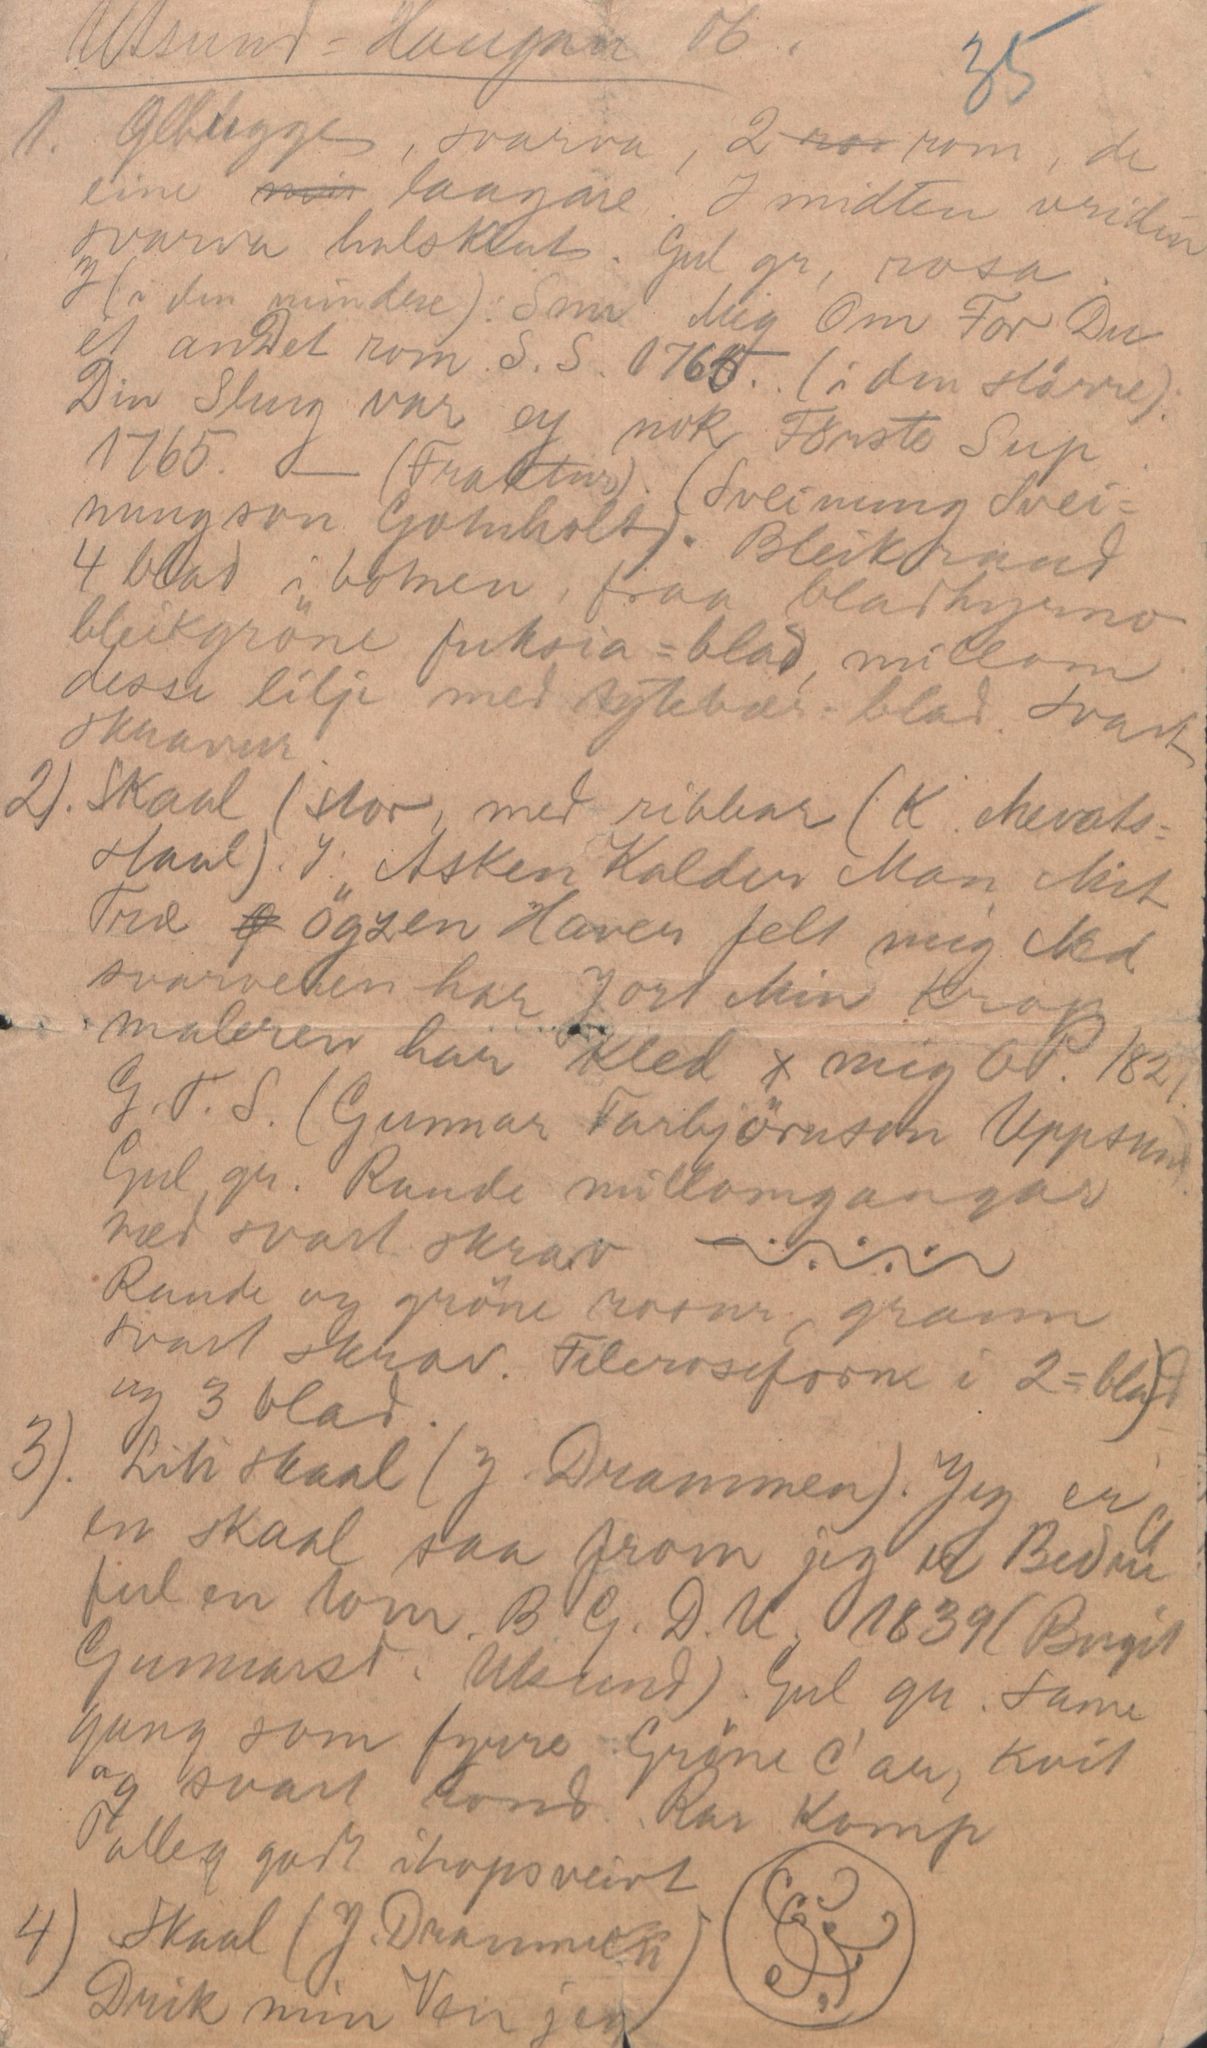 Utsund = Haugan 06.
35
1. Ølbugge, svarva, 2 rom, de
eine laagare. I midten vriden
svarva halsklut. Gul gr, rosa.
I (i den mindre): Snu Mig Om For Du
et andet rom. S. S. 1765. (i den större):
Din Slurg var ey nok Förste Sup
1765. — (Fraktur). (Sveinung Svei=
nungson Gotuholt). Bleikraud
4 blad i botnen, fraa bladhyrno
bleikgröne fuksia=blad, millom
desse lilje med tytebær-blad. Svart
skraver.
2). Skaal (stor, med ribbar (K. Mevats=
staul). I: "Asken Kalder Man Mit
Træ ögzen Haver felt mig Ned
svarveren har Jort Min Krop
maleren har Kled mig OP. 182
G. T. S. (Gunnar Tarbjörnson Uppsund
Gul gr. Raude millomgangar
med svart skrav
Raude og gröne rosur, grann
svart skrav. Fileroseforme i 2=blad
og 3 blad.
3). Liti skaal (J. Drammen). Jeg er
en skaal saa from jeg er Bedre
ful en tom. B G. D. U. 1839 (Birgit
Gunnarsd. Utsund). Gul gr. Same
gang som fyrre. Gröne C'ar, kvit
og svart rond. Rar Komp
Talleg godt ihopsveivt
4) Skaal (J. Drammen)
Drik min Ven jeg